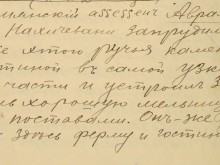 лянский assessent Абра
Наличевани запрудил
е этого ручья камен
тиной въ самой узк
части и устроилъ з
хорошую мельни
поставами. Онъ-же
ферму и гостин